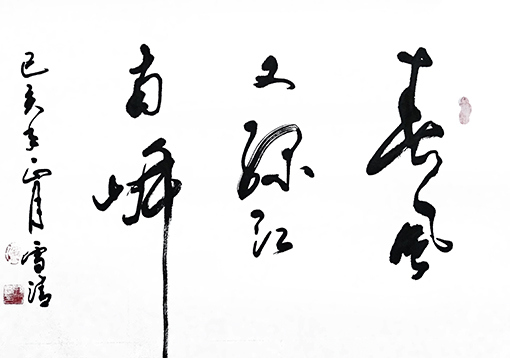 春風
又綠江
南岸
己亥年正月雪清